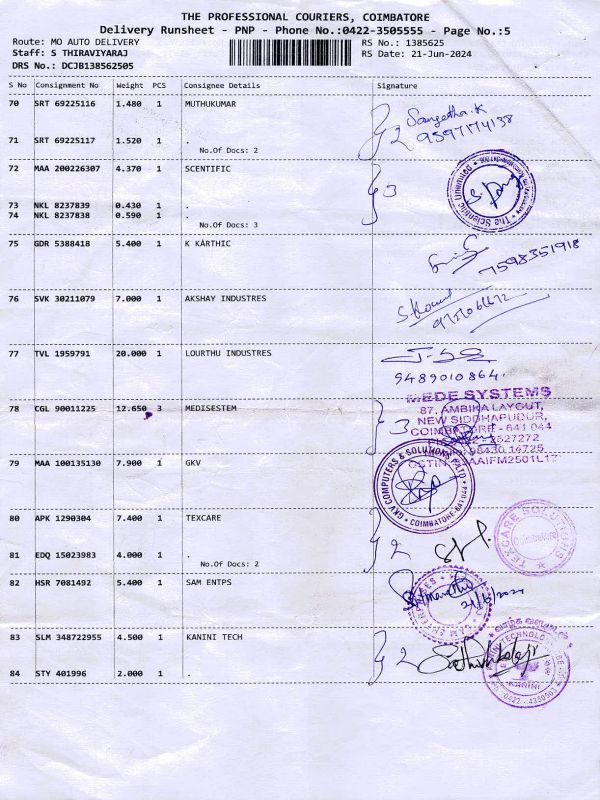 THE PROFESSIONAL COURIERS, COIMBATORE
Delivery Runsheet - PNP - Phone No.:0422-3505555 - Page No.:5
Route: MO AUTO DELIVERY RS No.: 1385625
Staff: S THIRAVIYARAJ RS Date: 21-Jun-2024
DRS No.: DCJB138562505
S No Consignment No Weight PCS Consignee Details Signature
70 SRT 69225116 1.480 1 MUTHUKUMAR
Sangetha.K
2 9597174138
71 SRT 69225117 1.520 1 .
No.Of Docs: 2
72 MAA 200226307 4.370 1 SCENTIFIC
3
The Scientific Unlimited
73 NKL 8237839 0.430 1 .
74 NKL 8237838 0.590 1 .
No.Of Docs: 3
75 GDR 5388418 5.400 1 K KARTHIC
7598351918
76 SVK 30211079 7.000 1 AKSHAY INDUSTRES
77 TVL 1959791 20.000 1 LOURTHU INDUSTRES
9489010864
78 CGL 90011225 12.650 3 MEDISESTEM
3
MEDE SYSTEMS
87, AMBIKA LAYOUT,
NEW SIDDHAPUDUR,
COIMBATORE - 641 044
2527272
98430 16725
79 MAA 100135130 7.900 1 GKV
GKV COMPUTERS & SOLUTIONS
COIMBATORE-641 044
80 APK 1290304 7.400 1 TEXCARE
2
TEXCARE
Coimbatore
81 EDQ 15023983 4.000 1 .
No.Of Docs: 2
82 HSR 7081492 5.400 1 SAM ENTPS
21/6/2024
83 SLM 348722955 4.500 1 KANINI TECH
2
KANINI
84 STY 401996 2.000 1 .